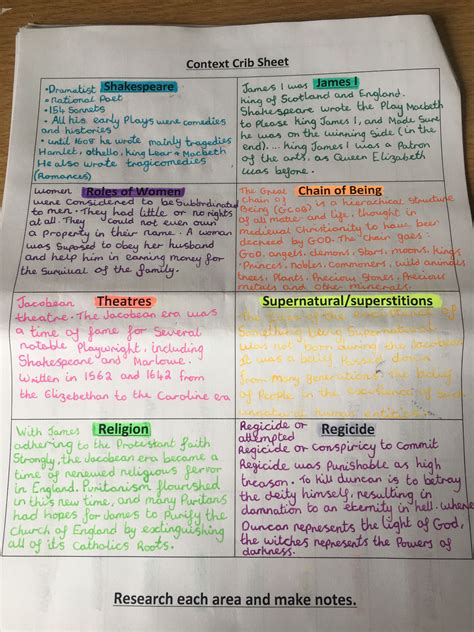 Context Crib Sheet
Shakespeare
•Dramatist
•National Poet
•154 Sonnets
• All his early Plays were comedies
and histories
• until 1608 he wrote mainly tragedies
Hamlet, othello, king Lear & Macbeth
He also wrote tragicomedies
(Romances)
James I
James I was
king of Scotland and England.
Shakespeare wrote the Play Macbeth
to Please king James I, and Made Sure
he was on the winning Side (in the
end).... king James I was a Patron
of the arts, as Queen Elizabeth
was before.
Roles of Women
Women
were considered to be Subordinated
to men. They had little or no rights
at all. They could not even own
a property in their name. A woman
was Suposed to obey her husband
and help him in earning money for
the Survival of the family.
Chain of Being
The Great
Chain of
Being (GCOB) is a hierarchical structure
of all matter and life, thought in
medieval Christianity to have been
decreed by GOD. The chain goes:
GOD, angels, demons, Stars, moons, kings
Princes, Nobles, Commoners, wild animals
trees, Plants, Precious Stones, Precious
metals and other minerals.
Theatres
Jacobean
theatre. The Jacobean era was
a time of fame for Several
notable Playwright, including
Shakespeare and Marlowe.
Written in 1562 and 1642 from
the Elizebethan to the Caroline era
Supernatural/superstitions
Something being Supernatural
was not born during the Jacobean
It was a belief Passed down
from Many generations. The belief
of People in the existence of such
entities.
Religion
With James
adhering to the Protestant faith
Strongly, the Jacobean era became a
time of renewed religious fervor
in England. Puritanism flourished
in this new time, and many Puritans
had hopes for James to Purify the
Church of England by extinguishing
all of its Catholics Roots.
Regicide
Regicide or
attempted
Regicide or Conspiricy to Commit
Regicide was Punishable as high
treason. To kill duncan is to betray
the deity himself, resulting in
damnation to an eternity in hell. where
Duncan represents the light of God,
the witches represents the Powers of
darkness.
Research each area and make notes.